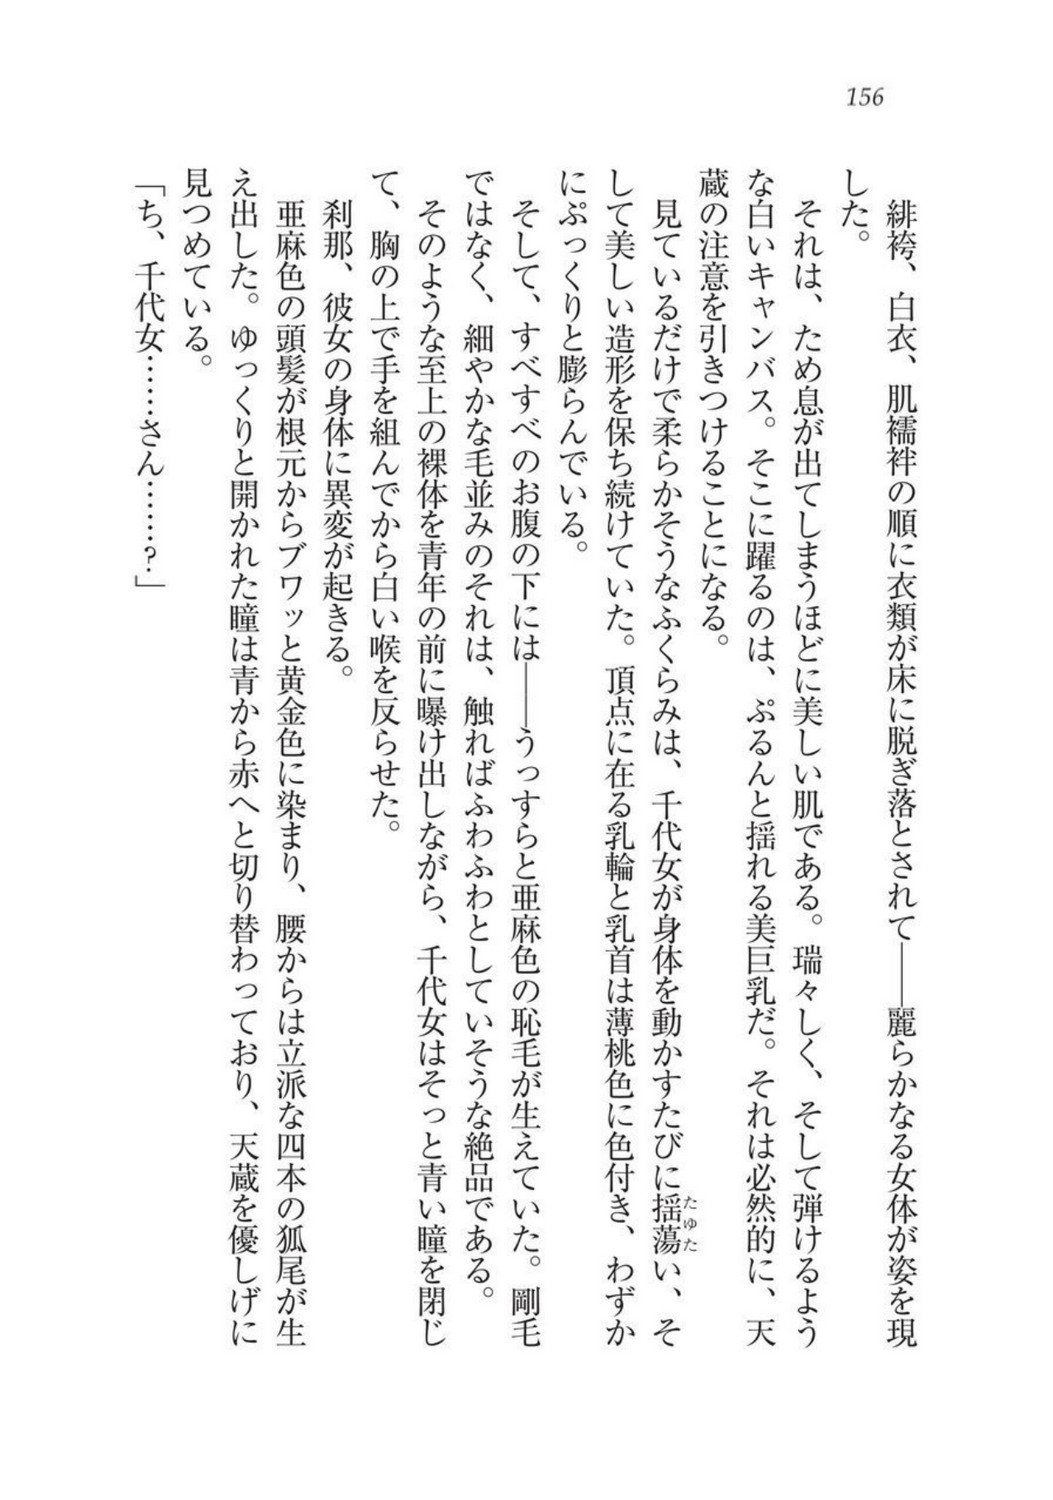 156
緋袴、白衣、肌襦袢の順に衣類が床に脱ぎ落とされて――麗らかなる女体が姿を現
した。
それは、ため息が出てしまうほどに美しい肌である。瑞々しく、そして弾けるよう
な白いキャンバス。そこに躍るのは、ぷるんと揺れる美巨乳だ。それは必然的に、天
蔵の注意を引きつけることになる。
見ているだけで柔らかそうなふくらみは、千代女が身体を動かすたびに揺蕩い、そ
たゆた
して美しい造形を保ち続けていた。頂点に在る乳輪と乳首は薄桃色に色付き、わずか
にぷっくりと膨らんでいる。
そして、すべすべのお腹の下には――うっすらと亜麻色の恥毛が生えていた。剛毛
ではなく、細やかな毛並みのそれは、触ればふわふわとしていそうな絶品である。
そのような至上の裸体を青年の前に曝け出しながら、千代女はそっと青い瞳を閉じ
て、胸の上で手を組んでから白い喉を反らせた。
刹那、彼女の身体に異変が起きる。
亜麻色の頭髪が根元からブワッと黄金色に染まり、腰からは立派な四本の狐尾が生
え出した。ゆっくりと開かれた瞳は青から赤へと切り替わっており、天蔵を優しげに
見つめている。
「ち、千代女……さん……？」